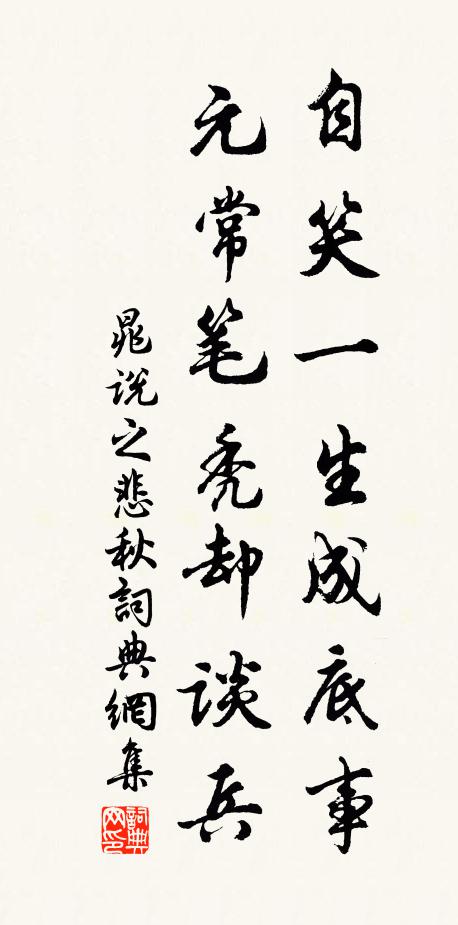 自笑一生成底事
元常笔秃却談兵
晁説之悲秋詞典網集
詞典网印